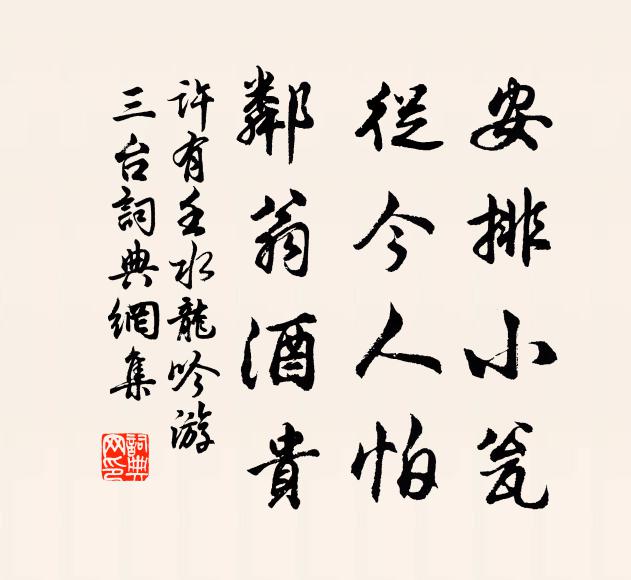 安排小瓮
從今人怕
鄰翁酒貴
許有壬水龍吟游
三台詞典網集
詞典
网印